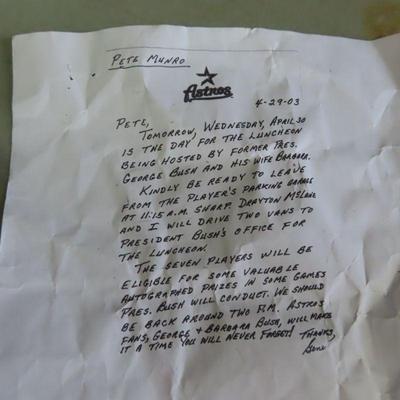 PETE MUNRO
Astros
4-29-03
PETE,
TOMORROW, WEDNESDAY, APRIL 30
IS THE DAY FOR THE LUNCHEON
BEING HOSTED BY FORMER PRES.
GEORGE BUSH AND HIS WIFE BARBARA.
KINDLY BE READY TO LEAVE
FROM THE PLAYER'S PARKING GARAGE
AT 11:15 A.M. SHARP. DRAYTON MCLANE
AND I WILL DRIVE TWO VANS TO
PRESIDENT BUSH'S OFFICE FOR
THE LUNCHEON.
THE SEVEN PLAYERS WILL BE
ELIGIBLE FOR SOME VALUABLE
AUTOGRAPHED PRIZES IN SOME GAMES
PRES. BUSH WILL CONDUCT. WE SHOULD
BE BACK AROUND TWO P.M. ASTROS
FANS, GEORGE & BARBARA BUSH, WILL MAKE
IT A TIME YOU WILL NEVER FORGET! THANKS,
Gene